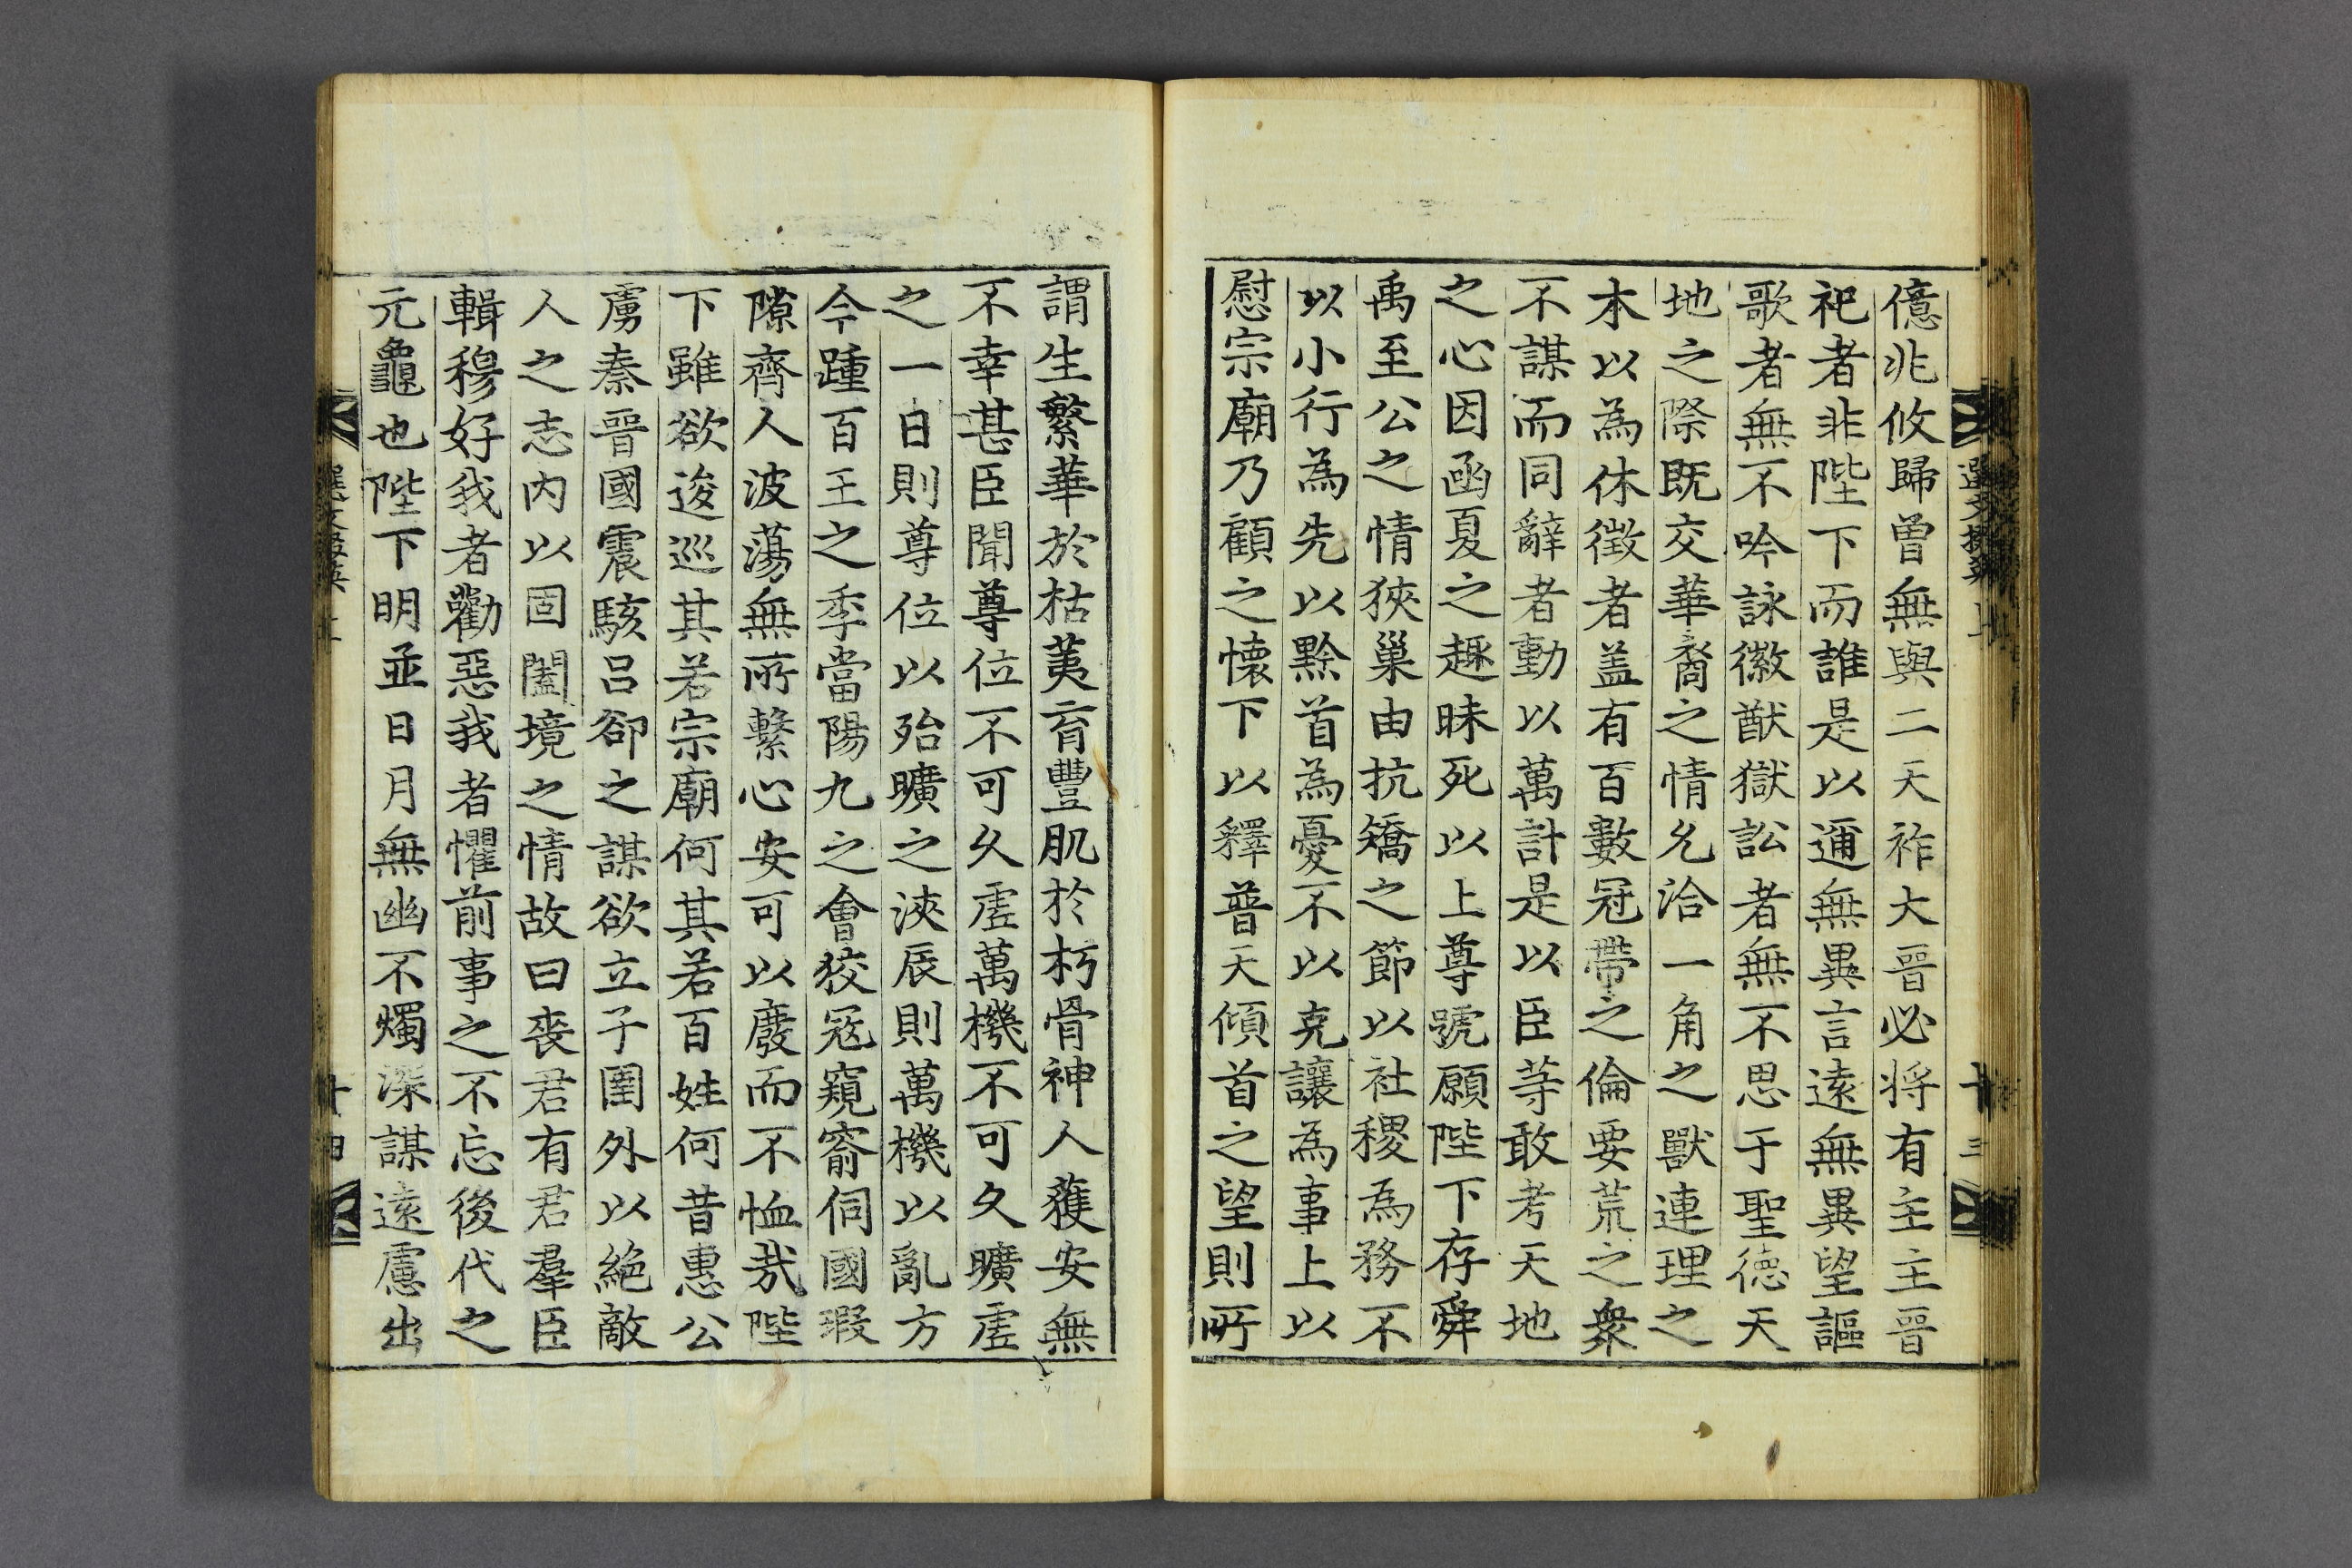 億兆攸歸曽無與二天祚大晉必将有主主晉
祀者非陛下而誰是以邇無異言逺無異望謳
歌者無不吟詠徽猷獄訟者無不思于聖徳天
地之際既交華裔之情允洽一角之獸連理之
木以為休徴者盖有百數冠帶之倫要荒之衆
不謀而同辭者動以萬計是以臣等敢考天地
之心因函夏之趣昧死以上尊號願陛下存舜
禹至公之情狹巢由抗矯之節以社稷為務不
以小行為先以黔首為憂不以克讓為事上以
慰宗廟乃顧之懷下以釋普天傾首之望則所
謂生繁華於枯荑育豐肌於朽骨神人獲安無
不幸甚臣聞尊位不可久虚萬機不可久曠虚
之一日則尊位以殆曠之浹辰則萬機以亂方
今踵百王之季當陽九之會狡冦窺窬伺國瑕
隙齊人波蕩無所繫心安可以廢而不恤哉陛
下雖欲逡巡其若宗廟何其若百姓何昔惠公
虜秦晉國震駭吕郤之謀欲立子圉外以絶敵
人之志内以固闔境之情故曰喪君有君羣臣
輯穆好我者勸惡我者懼前事之不忘後代之
元龜也陛下明並日月無幽不燭深謀逺慮出
十四